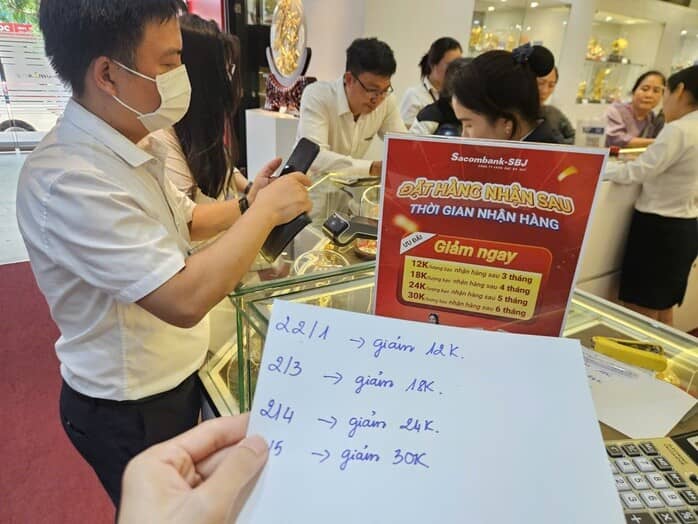 Sacombank-SBJ
ĐẶT HÀNG NHẬN SAU
THỜI GIAN NHẬN HÀNG
ƯU ĐÃI
Giảm ngay
12K/lượng/bạc nhận hàng sau 3 tháng
18K/lượng/bạc nhận hàng sau 4 tháng
24K/lượng/bạc nhận hàng sau 5 tháng
30K/lượng/bạc nhận hàng sau 6 tháng
22/1 → giảm 12K.
2/3 → giảm 18K.
2/4 → giảm 24K.
/5 → giảm 30K